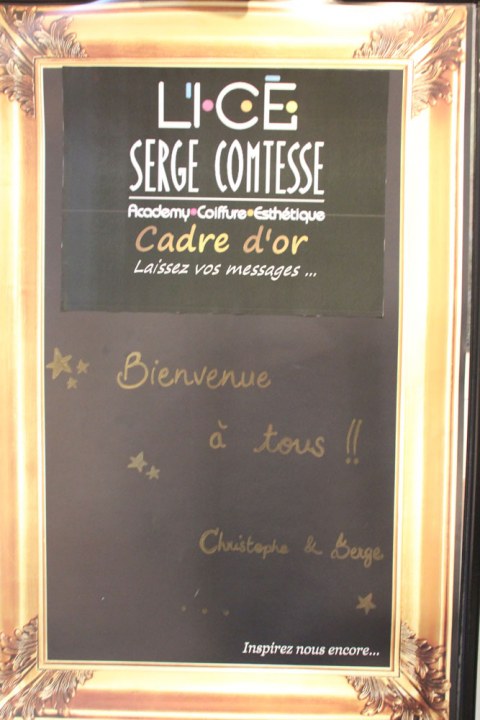 L'I•C•É•
SERGE COMTESSE
Academy•Coiffure•Esthétique
Cadre d'or
Laissez vos messages ...
Bienvenue
à tous !!
Christophe & Serge
...
Inspirez nous encore...